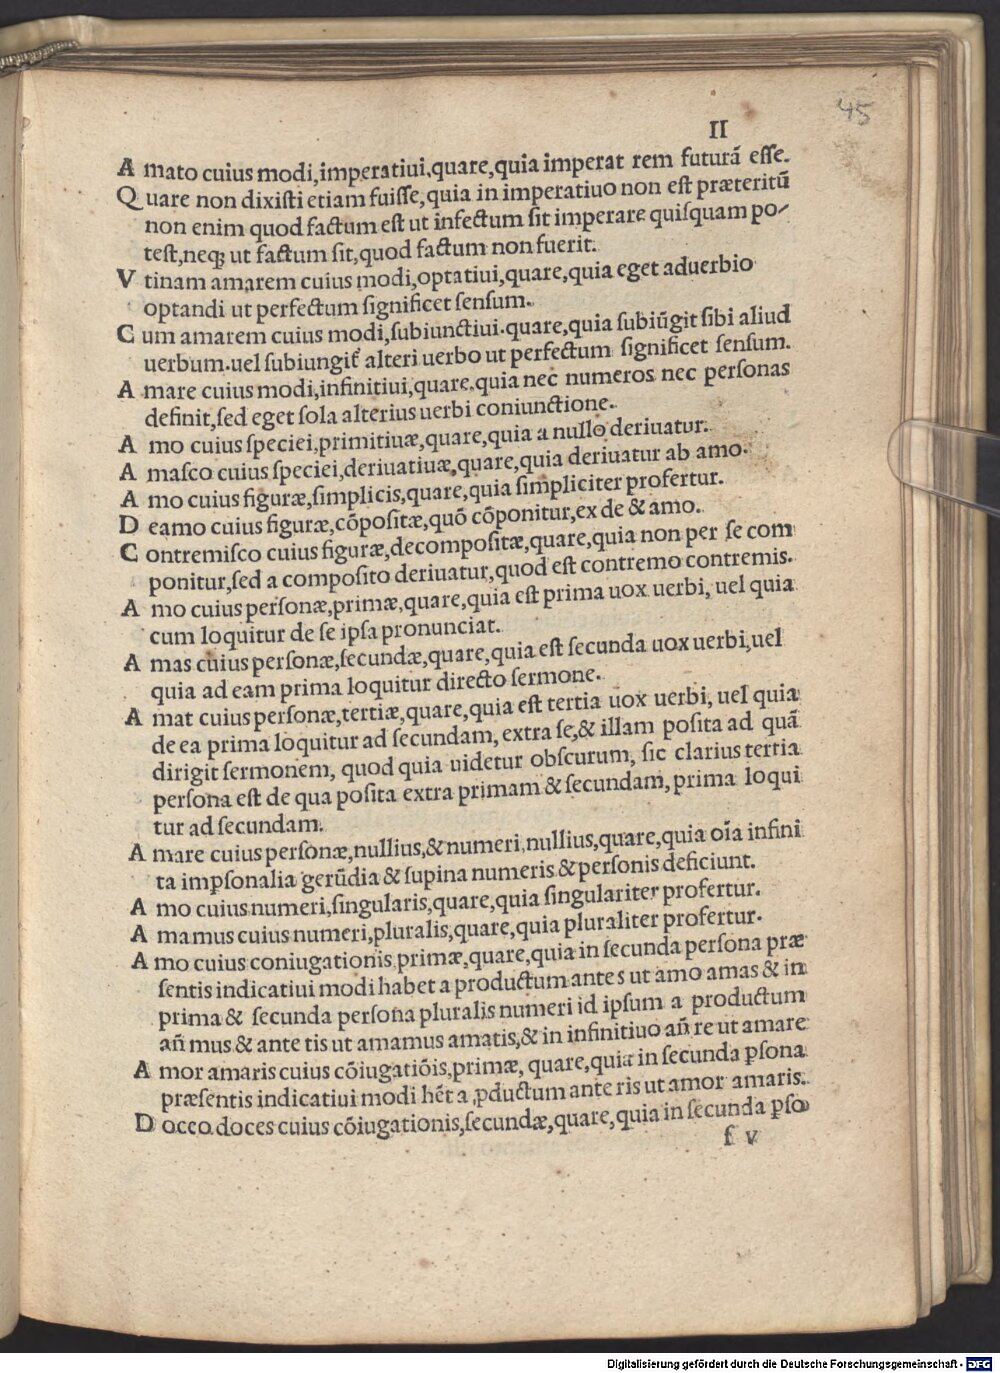 45
II
A mato cuius modi,imperatiui,quare,quia imperat rem futurā eſſe.
Q uare non dixiſti etiam fuiſſe,quia in imperatiuo non eſt præteritū
non enim quod factum eſt ut infectum ſit imperare quiſquam po-
teſt,neqꝫ ut factum ſit,quod factum non fuerit.
V tinam amarem cuius modi,optatiui,quare,quia eget aduerbio
optandi ut perfectum ſignificet ſenſum.
C um amarem cuius modi,ſubiunctiui.quare,quia ſubiūgit ſibi aliud
uerbum.uel ſubiungit᷑ alteri uerbo ut perfectum ſignificet ſenſum.
A mare cuius modi,infinitiui,quare,quia nec numeros nec perſonas
definit,ſed eget ſola alterius uerbi coniunctione.
A mo cuius ſpeciei,primitiuæ,quare,quia a nullo deriuatur.
A maſco cuius ſpeciei,deriuatiuæ,quare,quia deriuatur ab amo.
A mo cuius figuræ,ſimplicis,quare,quia ſimpliciter profertur.
D eamo cuius figuræ,cōpoſitæ,quō cōponitur,ex de & amo.
C ontremiſco cuius figuræ,decompoſitæ,quare,quia non per ſe com
ponitur,ſed a compoſito deriuatur,quod eſt contremo contremis.
A mo cuius perſonæ,primæ,quare,quia eſt prima uox uerbi, uel quia
cum loquitur de ſe ipſa pronunciat.
A mas cuius perſonæ,ſecundæ,quare,quia eſt ſecunda uox uerbi,uel
quia ad eam prima loquitur directo ſermone.
A mat cuius perſonæ,tertiæ,quare,quia eſt tertia uox uerbi, uel quia
de ea prima loquitur ad ſecundam, extra ſe,& illam poſita ad quā
dirigit ſermonem, quod quia uidetur obſcurum, ſic clarius tertia
perſona eſt de qua poſita extra primam & ſecundam, prima loqui
tur ad ſecundam.
A mare cuius perſonæ,nullius,& numeri,nullius,quare,quia oīa infini
ta imꝑſonalia gerūdia & ſupina numeris & perſonis deficiunt.
A mo cuius numeri,ſingularis,quare,quia ſingulariter profertur.
A mamus cuius numeri,pluralis,quare,quia pluraliter profertur.
A mo cuius coniugationis primæ,quare,quia in ſecunda perſona præ
ſentis indicatiui modi habet a productum ante s ut amo amas & in
prima & ſecunda perſona pluralis numeri id ipſum a productum
an̄ mus & ante tis ut amamus amatis,& in infinitiuo an̄ re ut amare
A mor amaris cuius cōiugatiōis,primæ, quare,quia in ſecunda ꝑſona
præſentis indicatiui modi hēt a ꝓductum ante ris ut amor amaris.
D oceo doces cuius cōiugationis,ſecundæ,quare,quia in ſecunda ꝑſo
f v
Digitalisierung gefördert durch die Deutsche Forschungsgemeinschaft - DFG